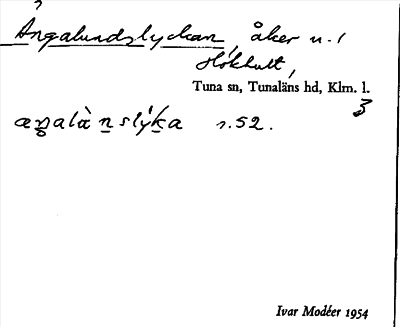 Ångalundslyckan, åker n. 1
Hökhult,
Tuna sn, Tunaläns hd, Klm. l.
3
aŋalàn slýka s. 52.
Ivar Modéer 1954